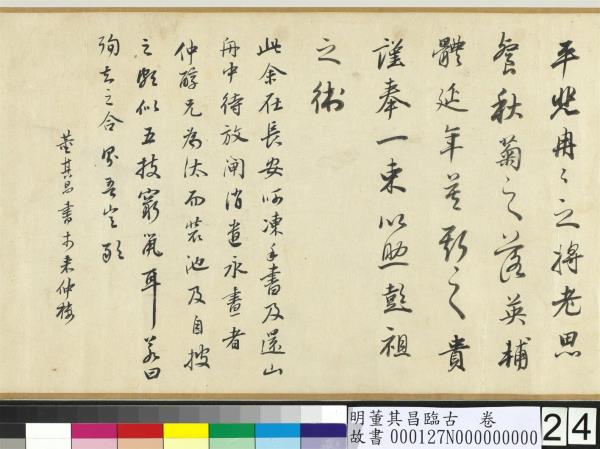 平悲冉〻之將老思
飧秋菊之落英輔
體延年莫斯之貴
謹奉一束以助彭祖
之術
此余在長安呵凍手書及還山
舟中待放閘消遣永晝者
仲醇兄為汰而裝池及自披
之頗似五技窮鼠耳若曰
之合則吾豈敢
董其昌書于来仲樓
明董其昌臨古 卷
故書 000127N000000000
24